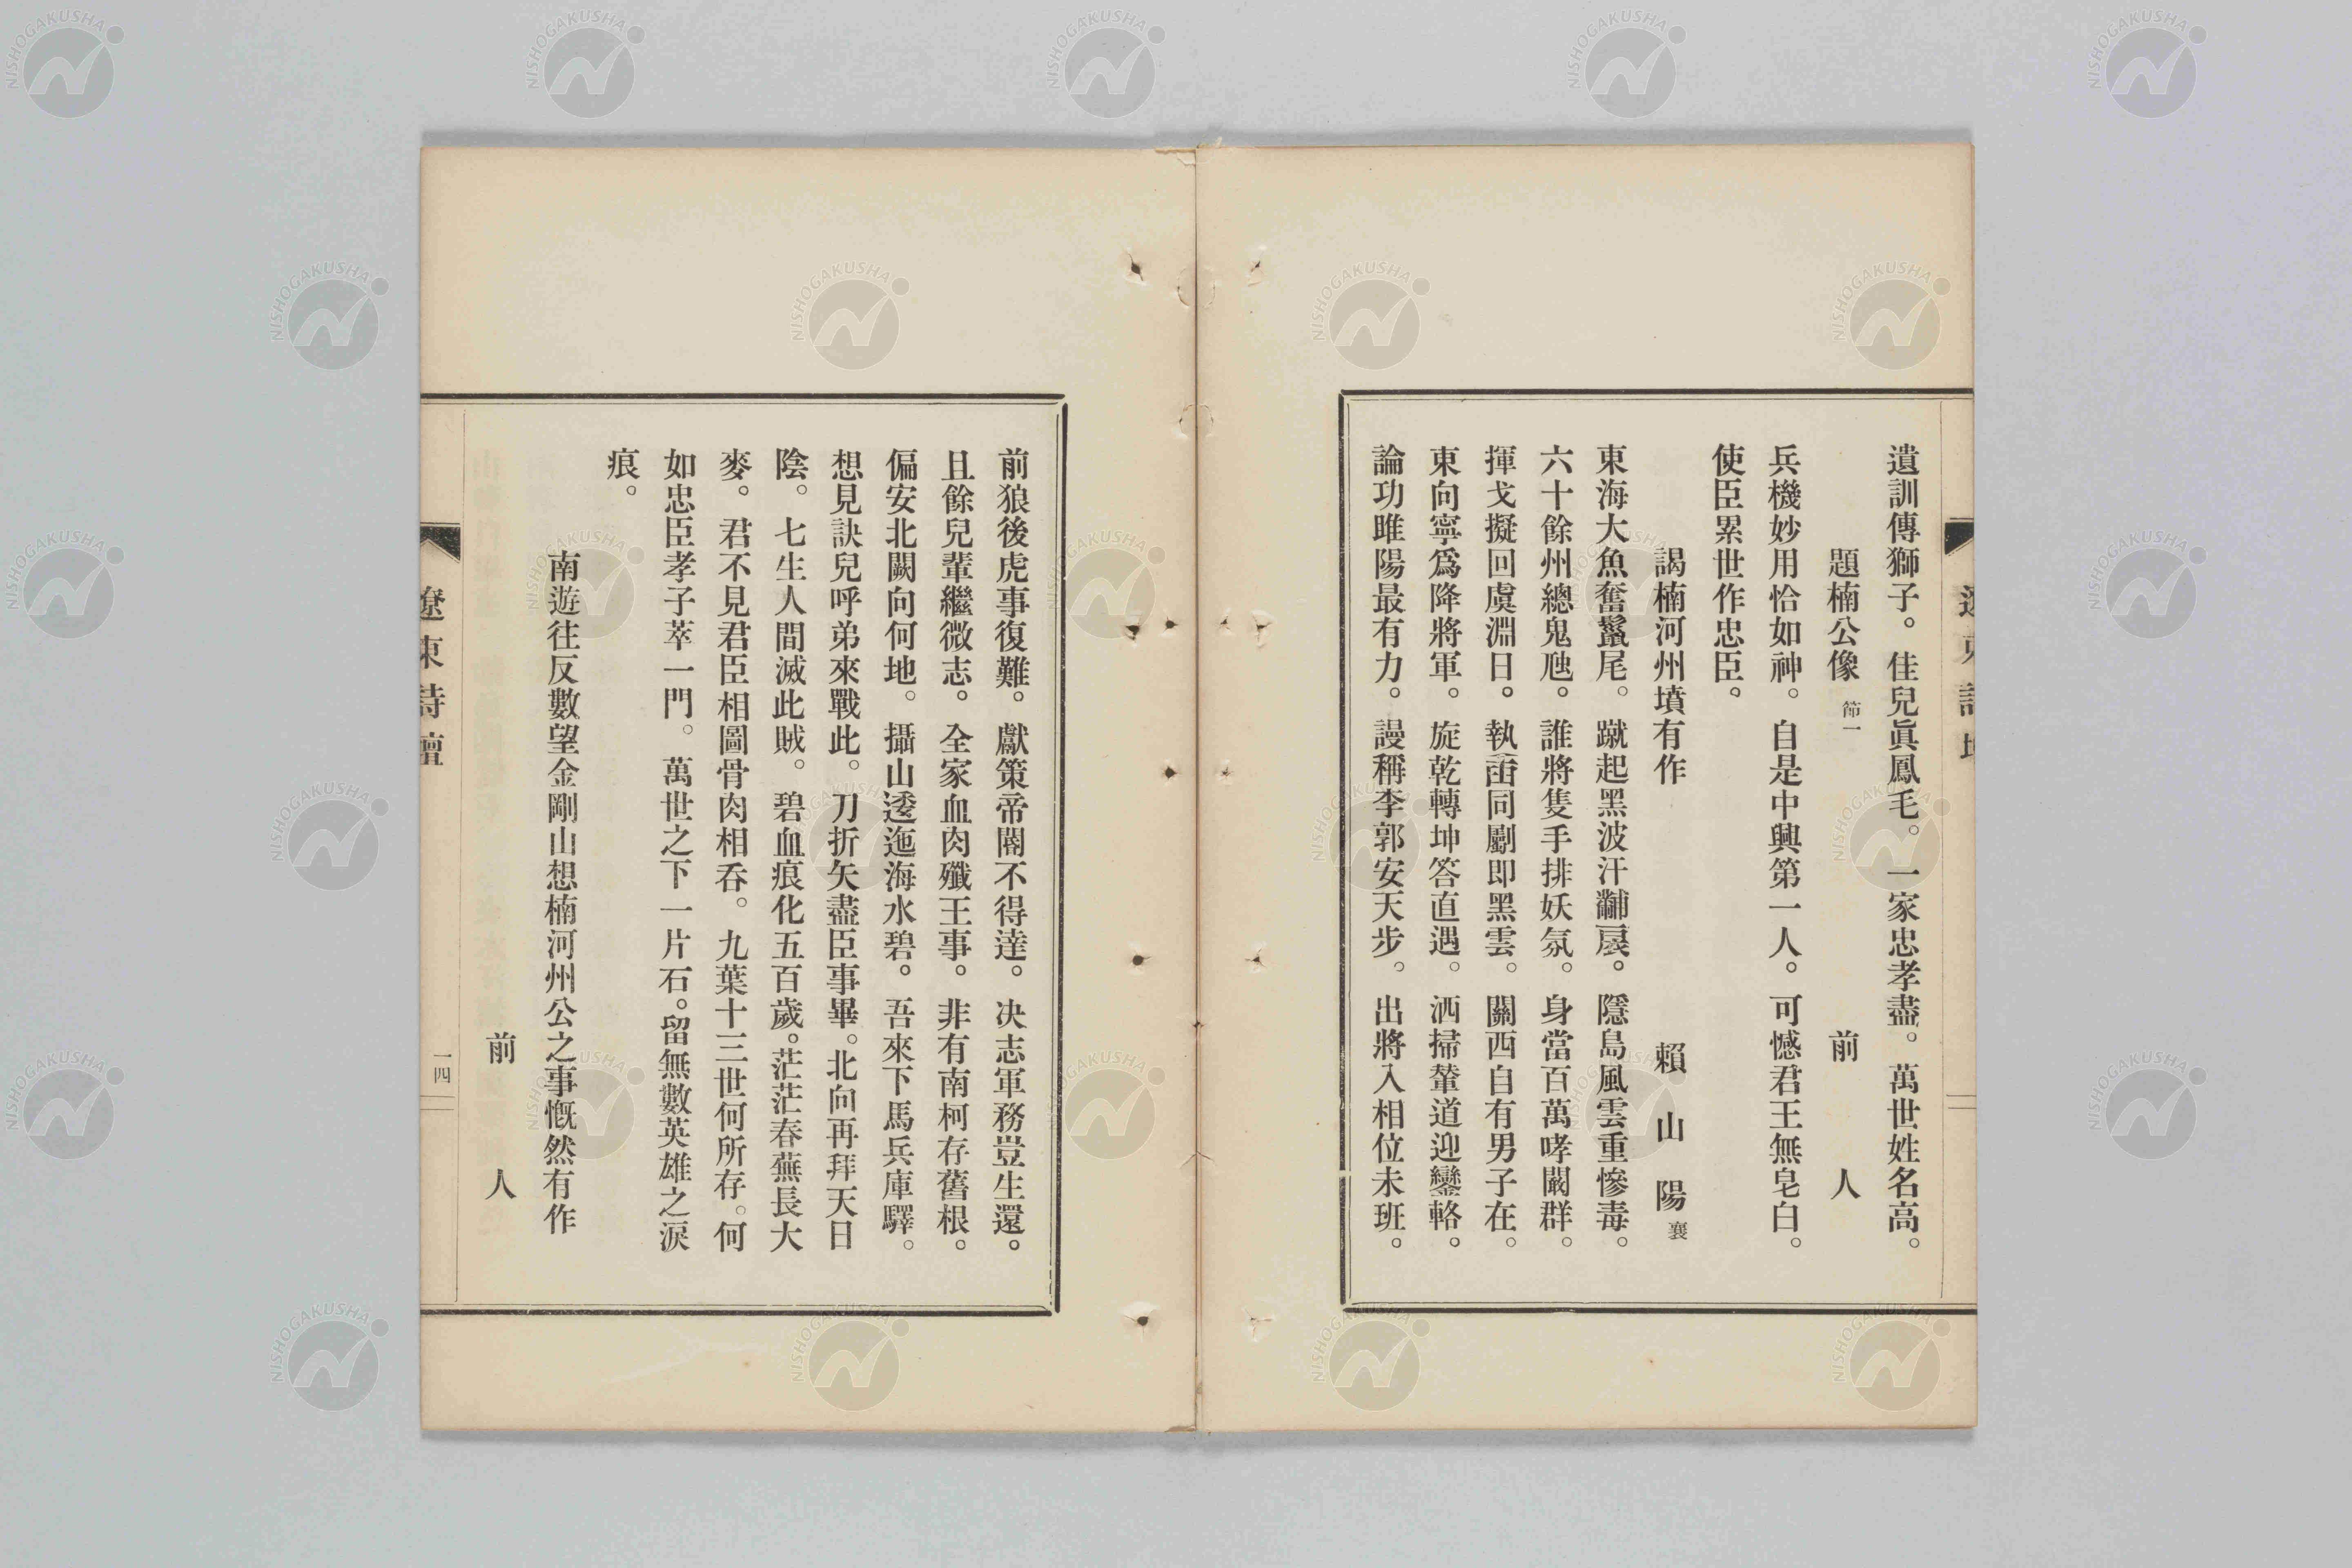 遺訓傳獅子。佳兒眞鳳毛。一家忠孝盡。萬世姓名高。
題楠公像 節一 前 人
兵機妙用恰如神。自是中興第一人。可憾君王無皂白。
使臣累世作忠臣。
謁楠河州墳有作 賴 山 陽 襄
東海大魚奮鬣尾。蹴起黑波汗黼扆。隱島風雲重慘毒。
六十餘州總鬼虺。誰將隻手排妖氛。身當百萬哮闞群。
揮戈擬回虞淵日。執臿同劚即黑雲。關西自有男子在。
東向寧爲降將軍。旋乾轉坤答直遇。洒掃輦道迎鑾輅。
論功睢陽最有力。謾稱李郭安天步。出將入相位未班。
前狼後虎事復難。獻策帝閽不得達。决志軍務豈生還。
且餘兒輩繼微志。全家血肉殲王事。非有南柯存舊根。
偏安北闕向何地。攝山逶迤海水碧。吾來下馬兵庫驛。
想見訣兒呼弟來戰此。刀折矢盡臣事畢。北向再拜天日
陰。七生人間滅此賊。碧血痕化五百歲。茫茫春蕪長大
麥。君不見君臣相圖骨肉相吞。九葉十三世何所存。何
如忠臣孝子萃一門。萬世之下一片石。留無數英雄之淚
痕。
南遊往反數望金剛山想楠河州公之事慨然有作
前 人
遼東詩壇
一四
NISHOGAKUSHA